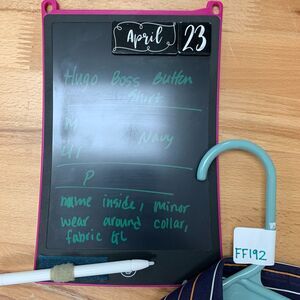 April 23
Hugo Boss Button
Shirt
M Navy
P
name inside, minor
wear around collar,
fabric GL
FF192